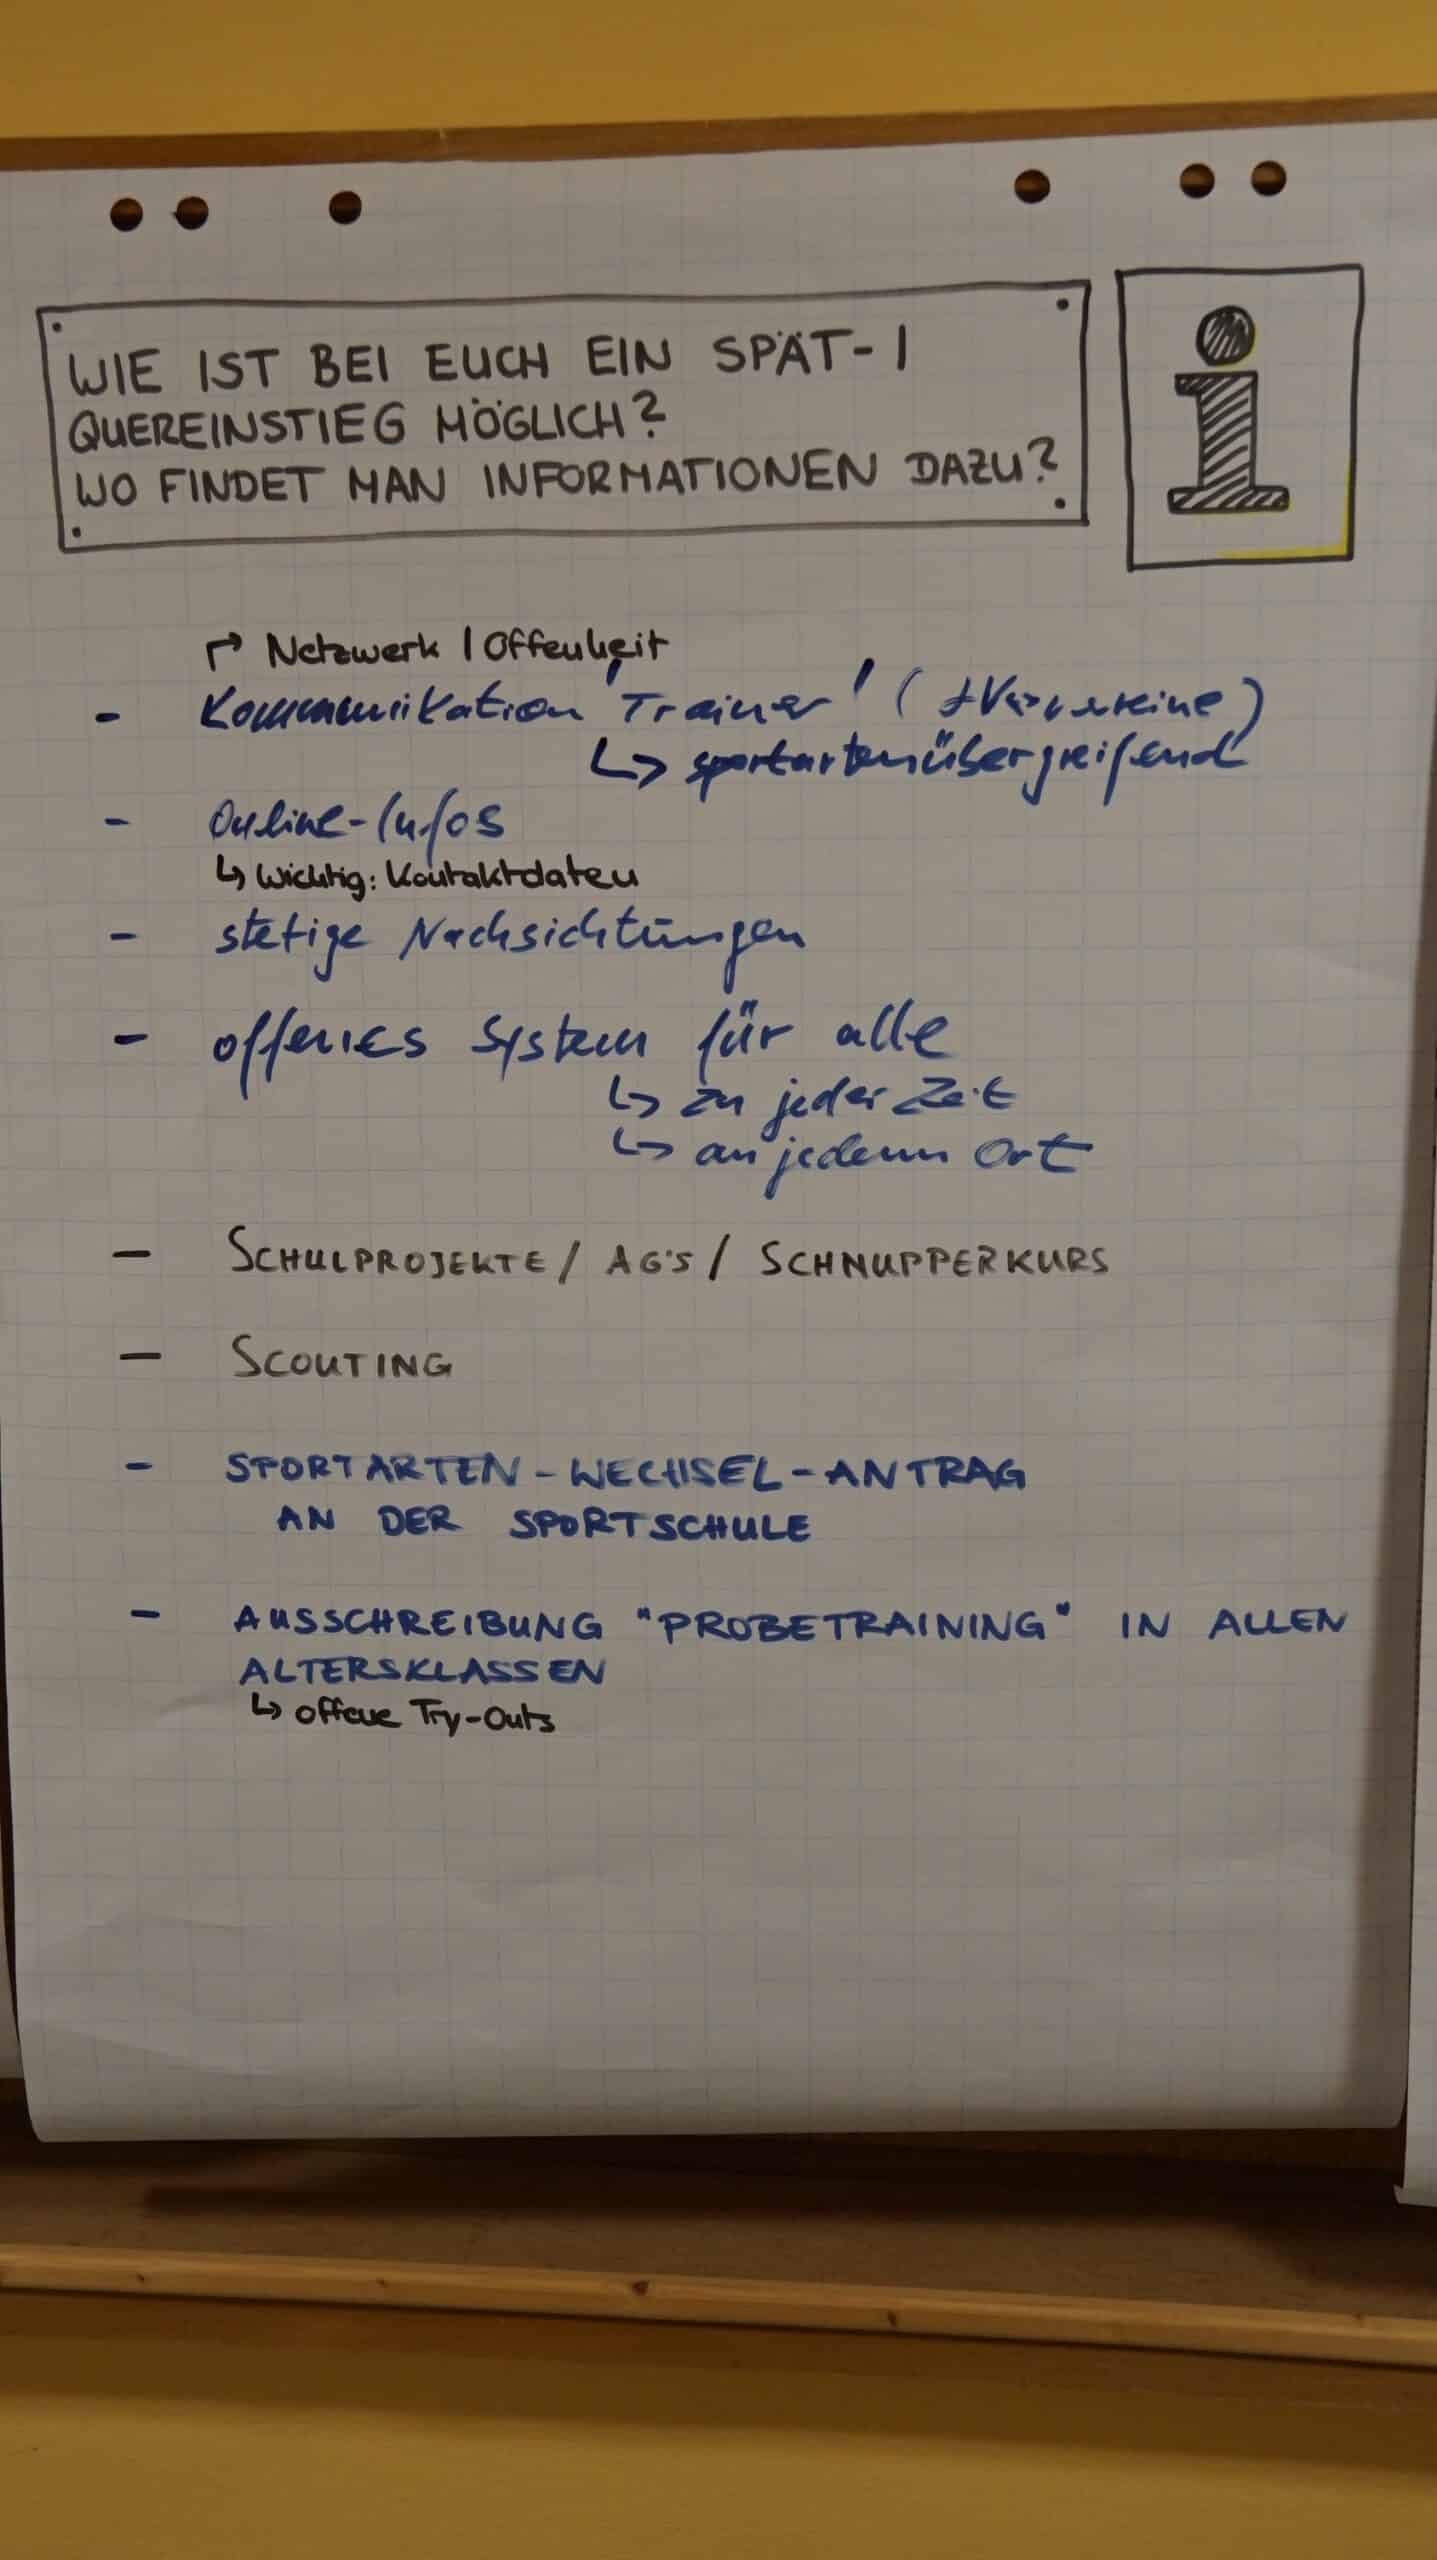 WIE IST BEI EUCH EIN SPÄT- |
QUEREINSTIEG MÖGLICH?
WO FINDET MAN INFORMATIONEN DAZU?
i
↱ Netzwerk | Offenheit
- Kommunikation 'Trainer' ( + Vereine)
↳ sportartenübergreifend
- Online-Infos
↳ Wichtig: Kontaktdaten
- stetige Nachsichtungen
- offenes System für alle
↳ zu jeder Zeit
↳ an jedem Ort
- SCHULPROJEKTE / AG'S / SCHNUPPERKURS
- SCOUTING
- SPORTARTEN-WECHSEL-ANTRAG
AN DER SPORTSCHULE
- AUSSCHREIBUNG "PROBETRAINING" IN ALLEN
ALTERSKLASSEN
↳ offene Try-Outs